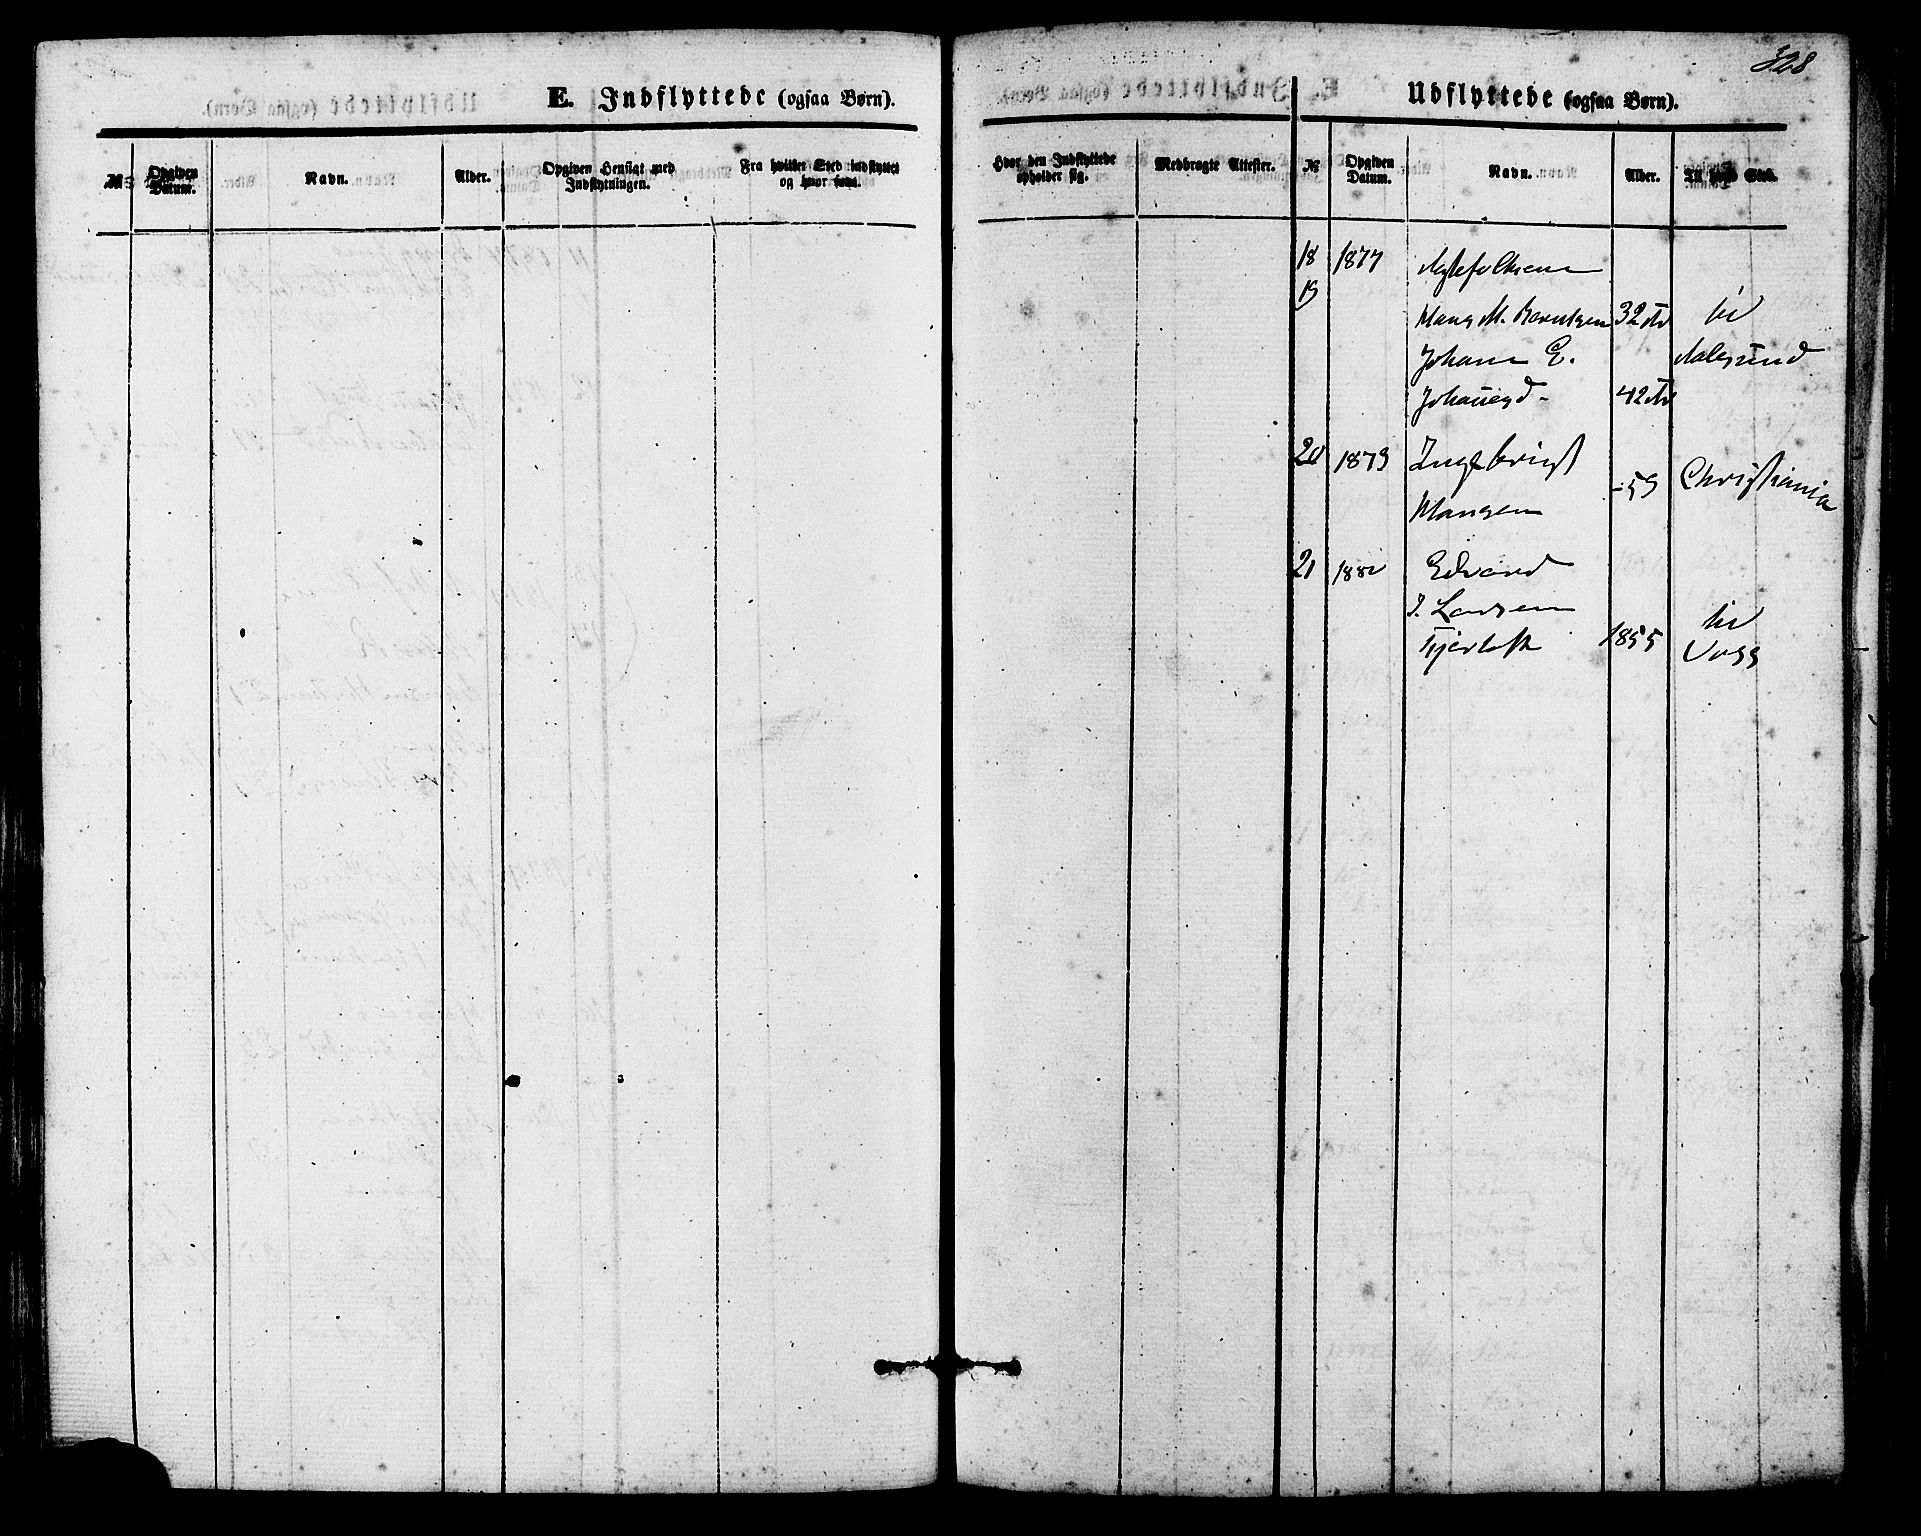 328
E. Indflyttede (ogsaa Børn).
№ Opgiven Datum. Navn. Alder. Opgiven Hensigt med Indflytningen. Fra hvilket Sted indflyttet og hvor født.
Udflyttede (ogsaa Børn).
Hvor den Indflyttede opholder sig. Medbragte Attester. № Opgiven Datum. Navn. Alder. Til hvad Sted.
18 1877 Ægtefolkene
19
Hans M. Berntsen 32 til
Johane E. Aalesund
Johansd- 42
20 1879 Ingebrigt
Hansen -59 Christiania
21 Edvard
I. Larsen til
1855 Voss